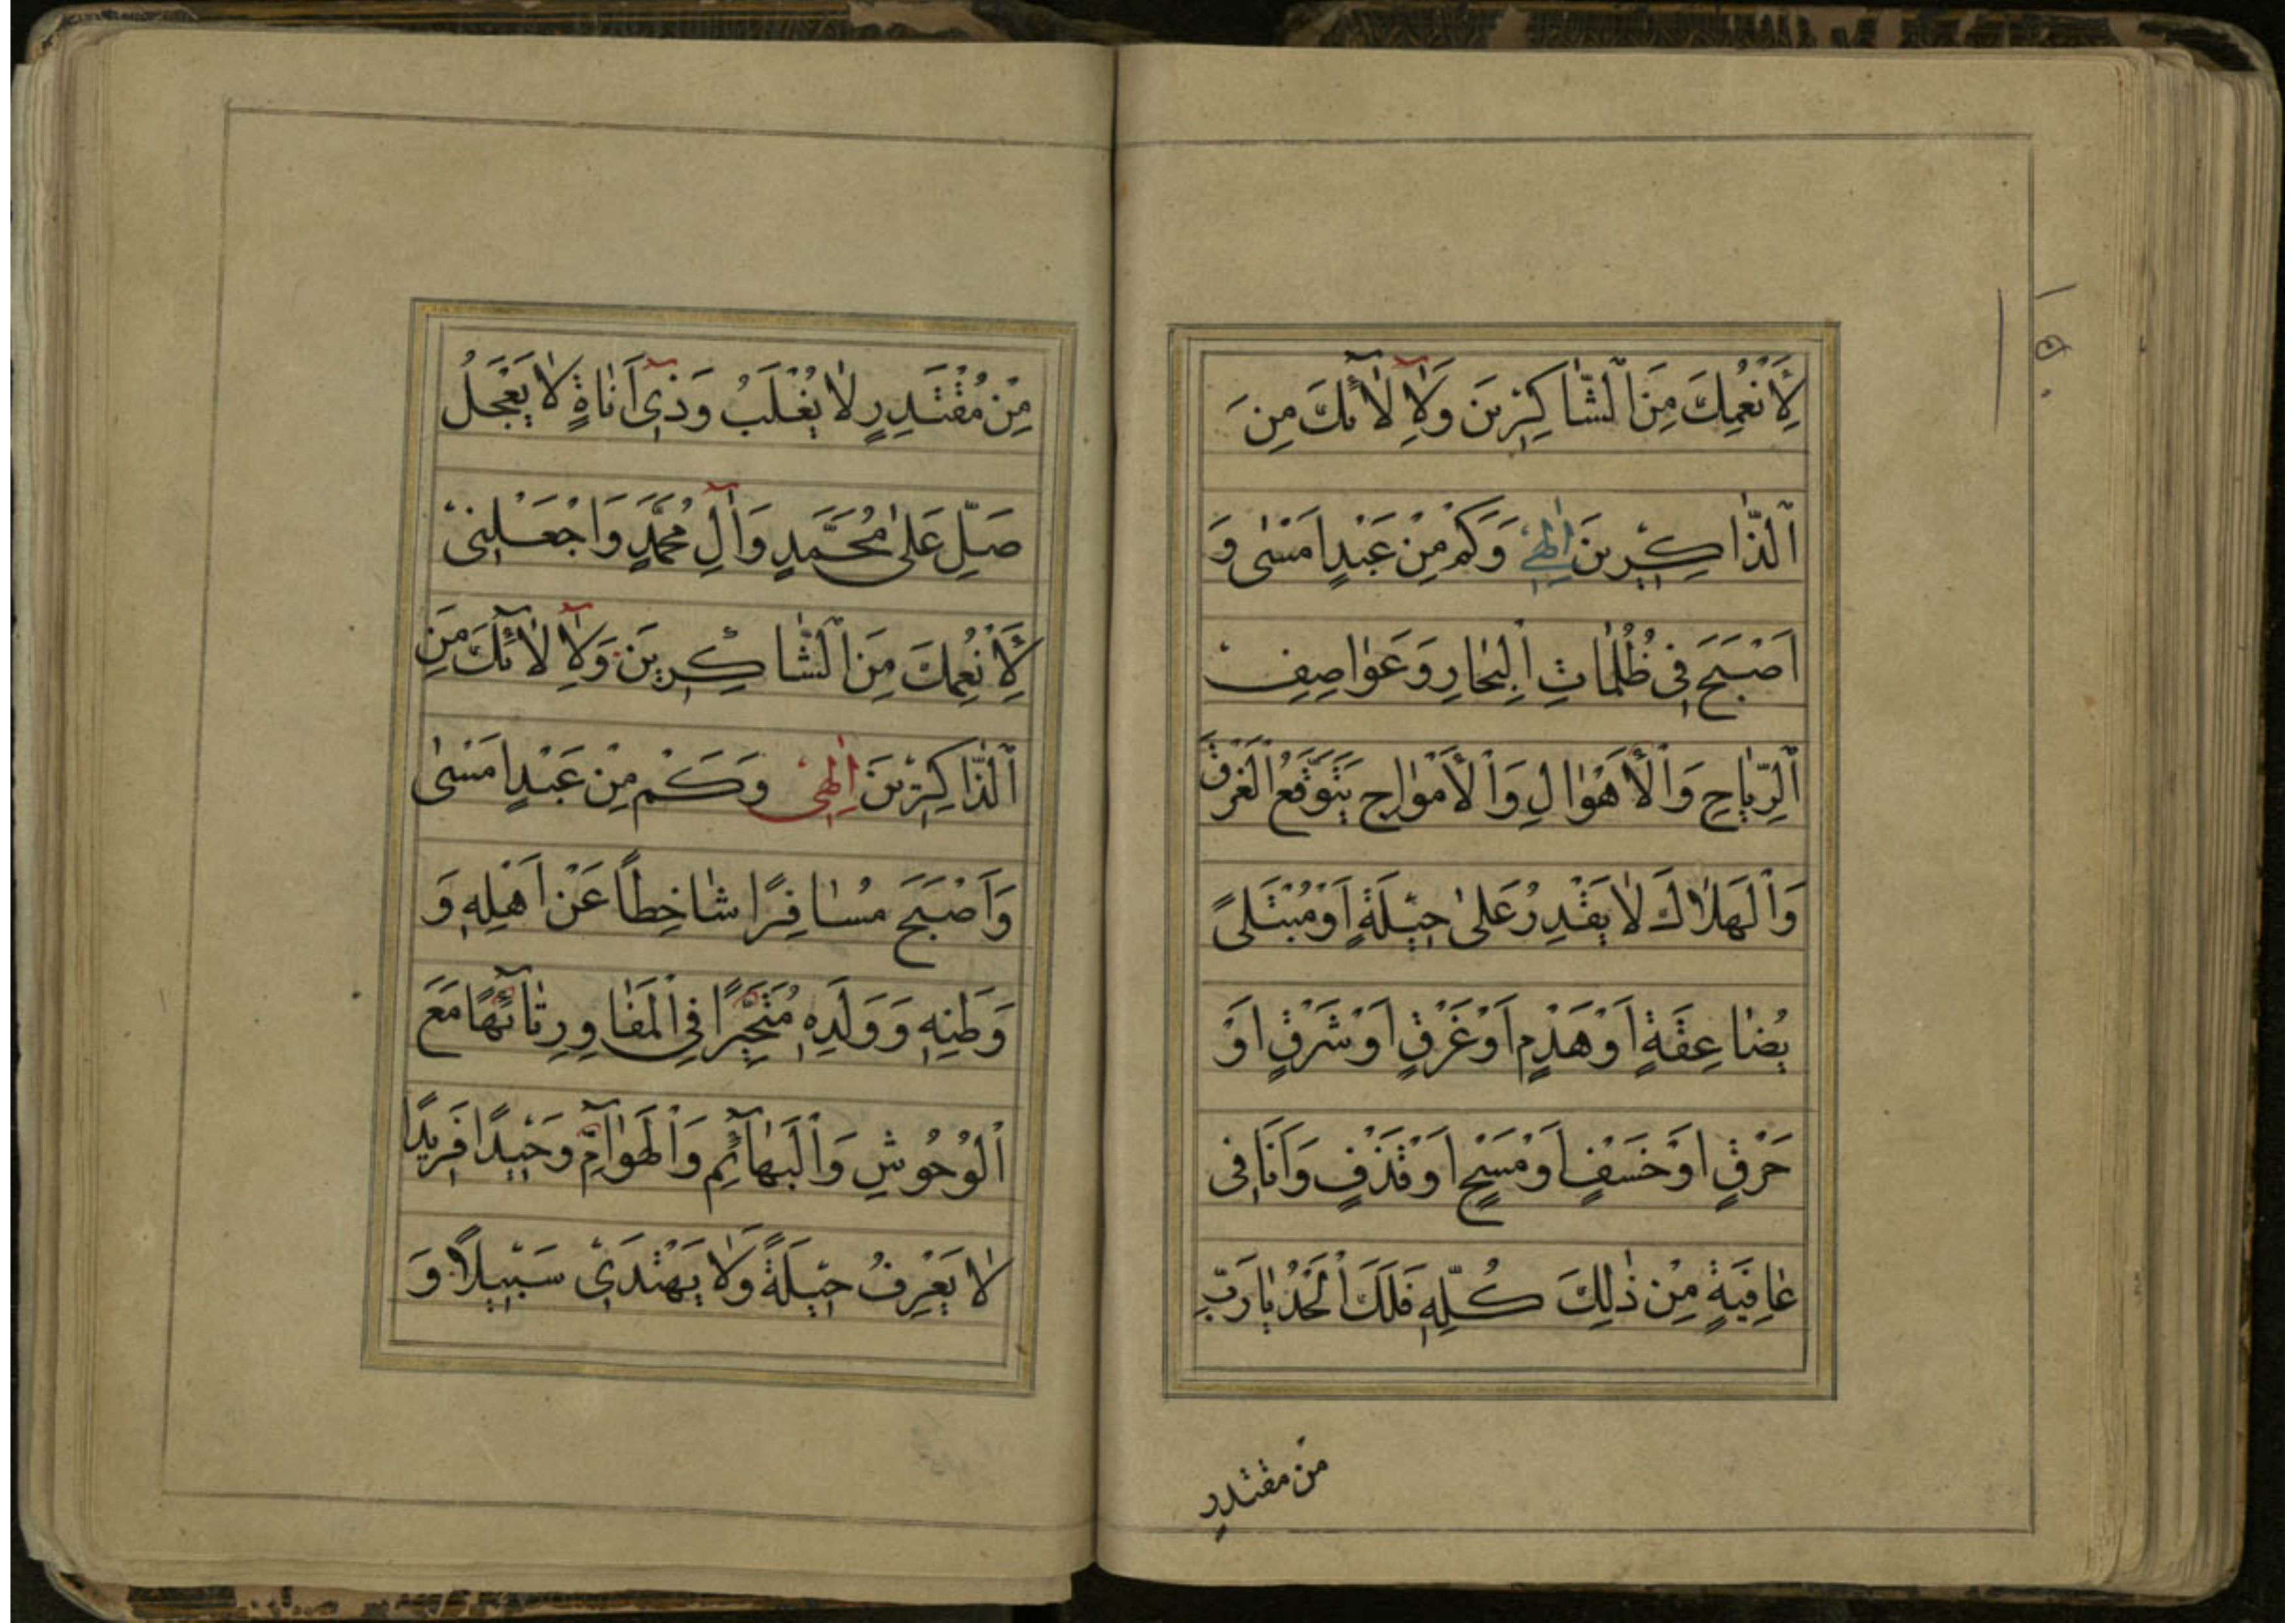 لِأَنْعُمِكَ مِنَ ٱلشَّاكِرِينَ وَلِآلَآئِكَ مِنَ
ٱلذَّاكِرِينَ اِلٰهِي وَكَمْ مِنْ عَبْدٍ اَمْسٰى وَ
اَصْبَحَ فِي ظُلُمَاتِ الْبِحَارِ وَعَوَاصِفِ
ٱلرِّيَاحِ وَٱلْأَهْوَالِ وَٱلْأَمْوَاجِ يَتَوَقَّعُ الْغَرَقَ
وَٱلْهَلَاكَ لَا يَقْدِرُ عَلٰى حِيْلَةٍ اَوْ مُبْتَلًى
بِصَاعِقَةٍ اَوْ هَدْمٍ اَوْ غَرْقٍ اَوْ شَرْقٍ اَوْ
حَرْقٍ اَوْ خَسْفٍ اَوْ مَسْخٍ اَوْ قَذْفٍ وَاَنَا فِي
عَافِيَةٍ مِنْ ذٰلِكَ كُلِّهِ فَلَكَ الْحَمْدُ يَا رَبِّ
من مقتدرٍ
١٥٠
مِنْ مُقْتَدِرٍ لَا يُغْلَبُ وَذِي اَنَاةٍ لَا يَعْجَلُ
صَلِّ عَلٰى مُحَمَّدٍ وَاٰلِ مُحَمَّدٍ وَاجْعَلْنِي
لِأَنْعُمِكَ مِنَ ٱلشَّاكِرِينَ وَلِآلَآئِكَ مِنَ
ٱلذَّاكِرِينَ اِلٰهِي وَكَمْ مِنْ عَبْدٍ اَمْسٰى
وَاَصْبَحَ مُسَافِرًا شَاخِطًا عَنْ اَهْلِهِ وَ
وَطَنِهِ وَوَلَدِهِ مُتَحَيِّرًا فِي الْمَفَاوِرِ تَائِهًا مَعَ
الْوُحُوشِ وَٱلْبَهَآئِمِ وَٱلْهَوَآمِّ وَحِيْدًا فَرِيدًا
لَا يَعْرِفُ حِيْلَةً وَلَا يَهْتَدِي سَبِيْلًا وَ